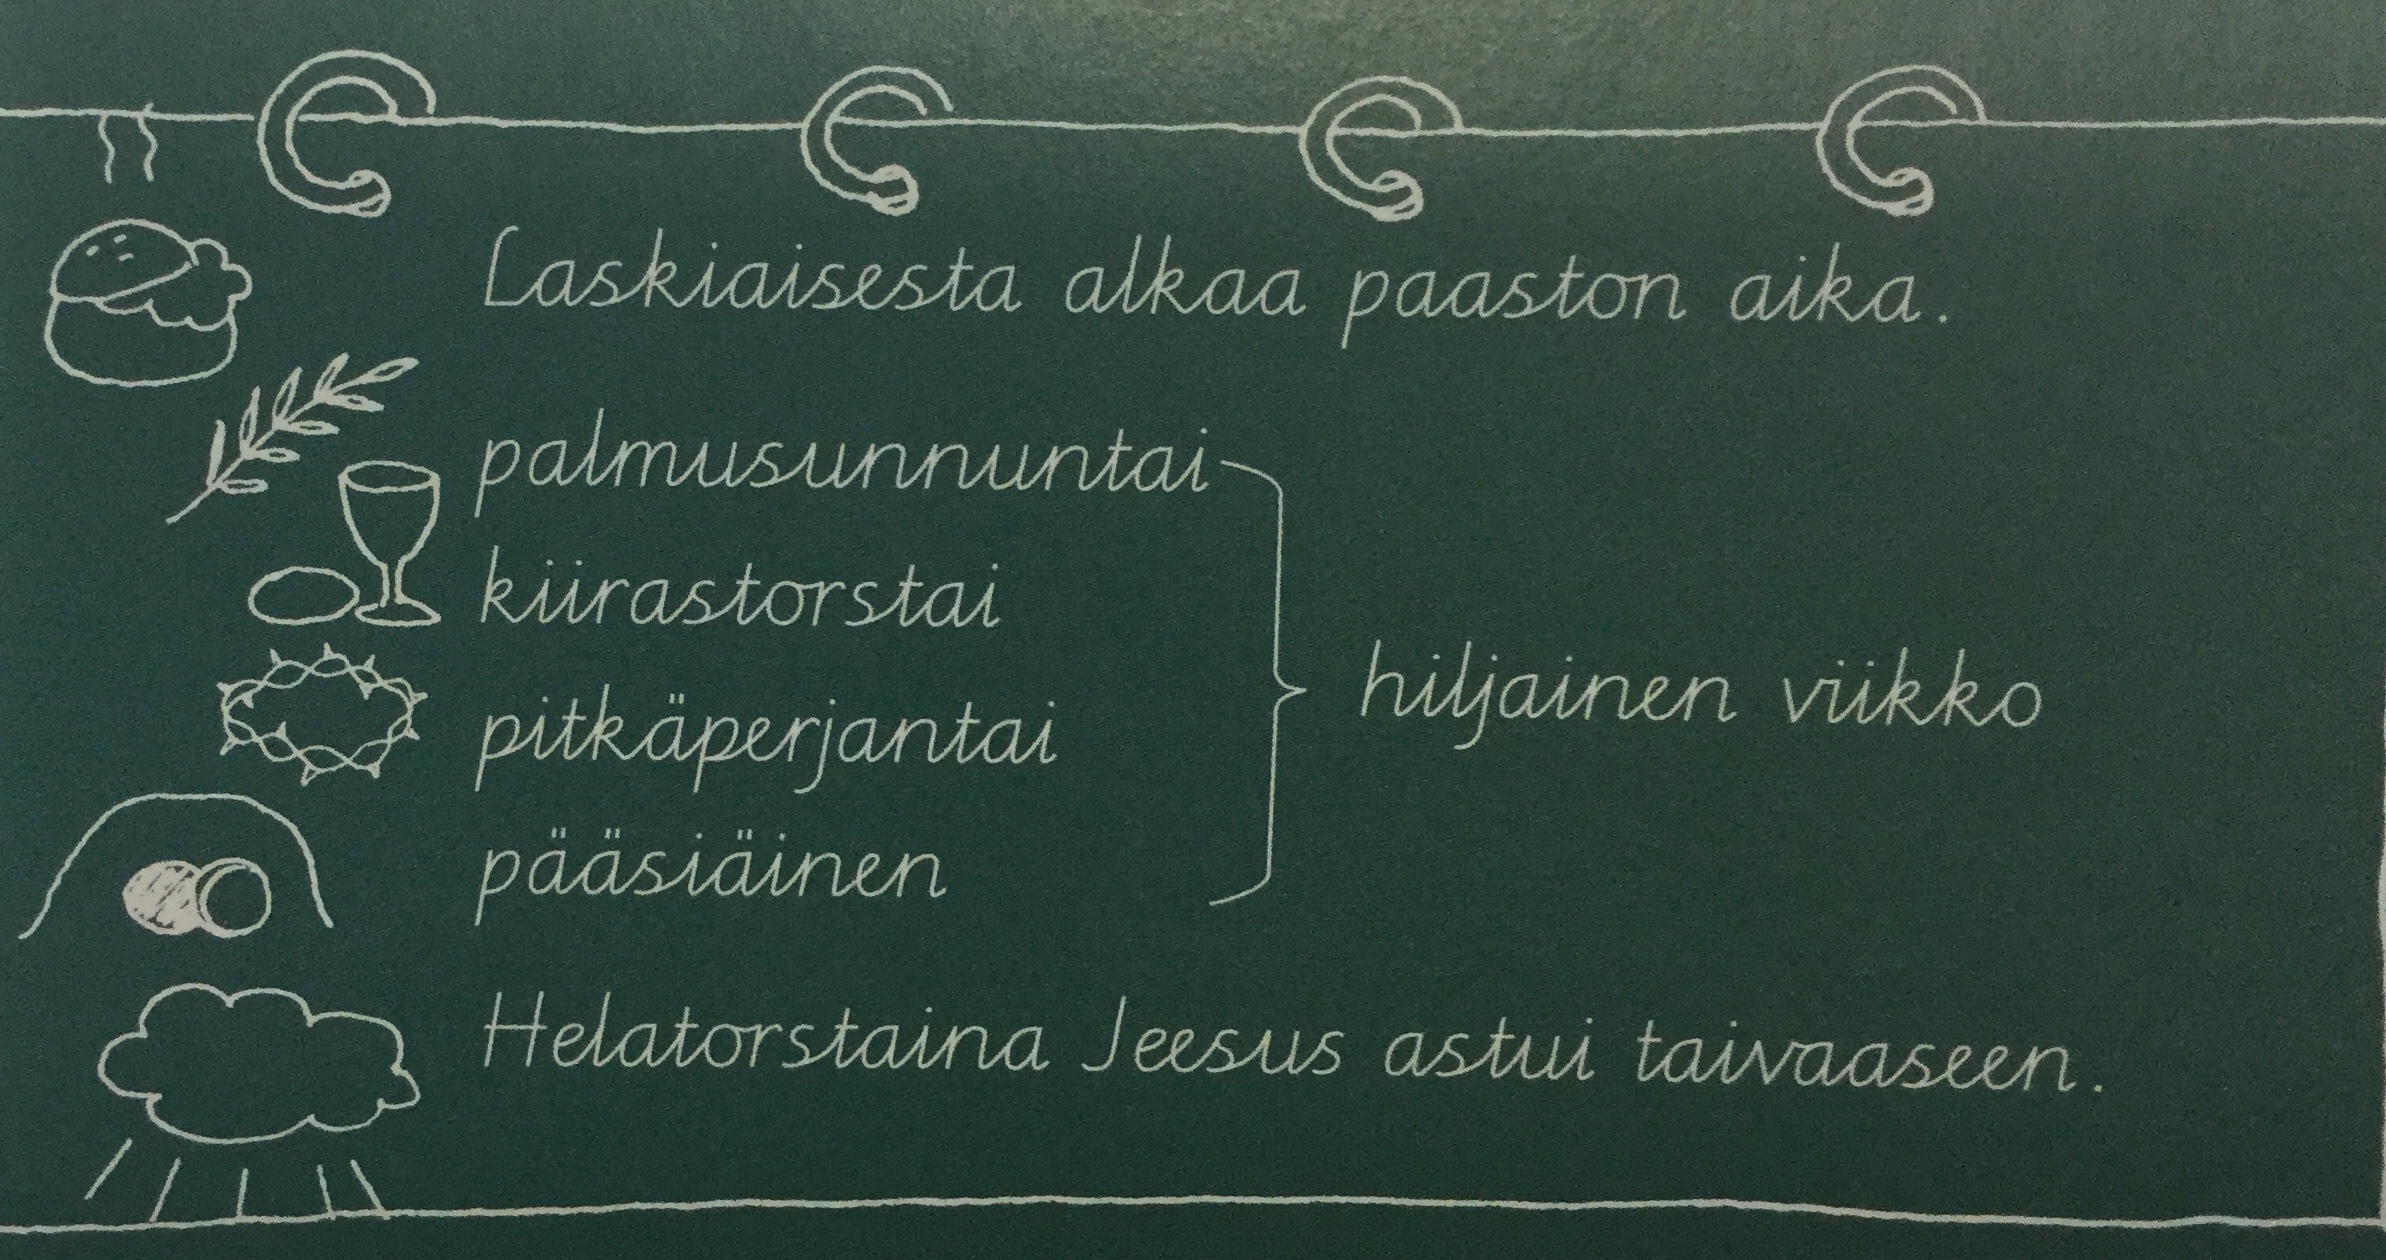 Laskiaisesta alkaa paaston aika.
palmusunnuntai
kiirastorstai
pitkäperjantai
pääsiäinen
hiljainen viikko
Helatorstaina Jeesus astui taivaaseen.